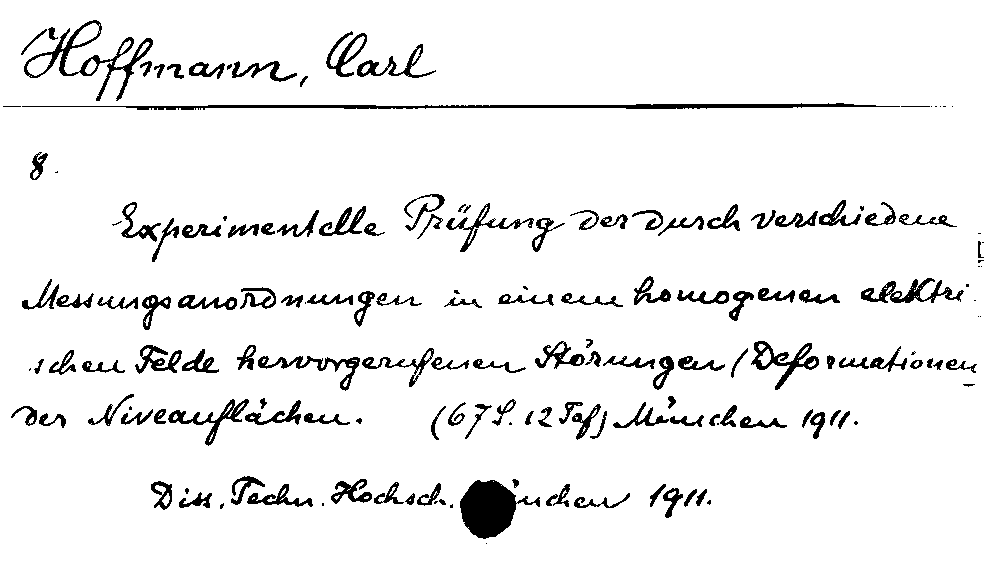 Hoffmann, Carl
8.
Experimentelle Prüfung der durch verschiedene
Messungsanordnungen in einem homogenen elektri
schen Felde hervorgerufenen Störungen (Deformationen
der Niveauflächen. (67 S. 12 Taf) München 1911.
Diss. Techn. Hochsch. ünchen 1911.